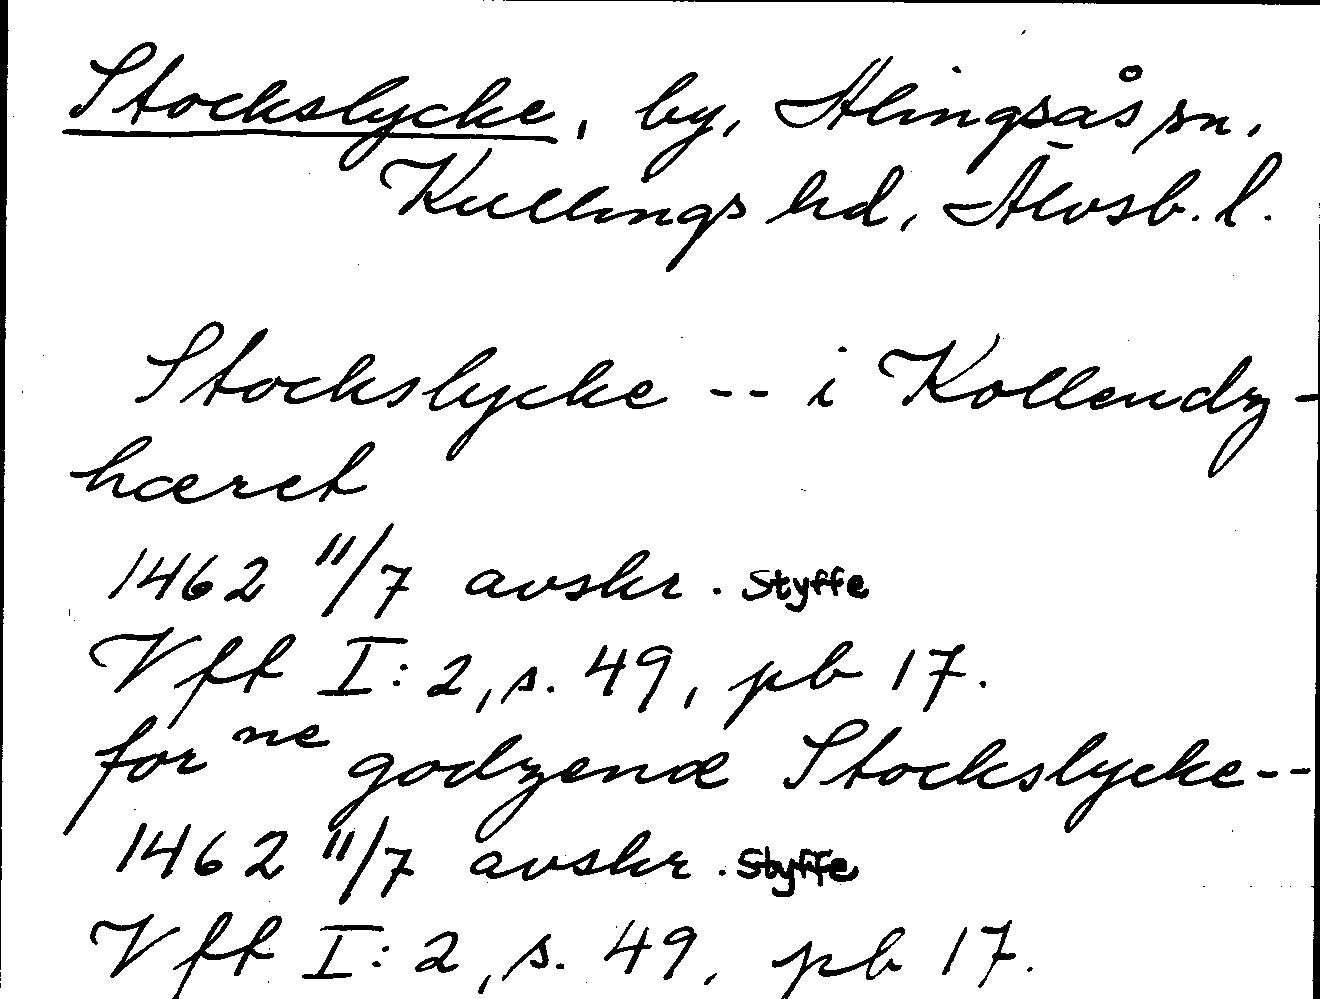 Stockslycke, by, Alingsås sn,
Kullings hd, Älvsb. l.
Stockslycke -- i Kollendz-
hæret
1462 11/7 avskr. Styffe
Vff I: 2, s. 49, pb 17.
for ne godzenæ Stockslycke--
1462 11/7 avskr. Styffe
Vff I: 2, s. 49, pb 17.